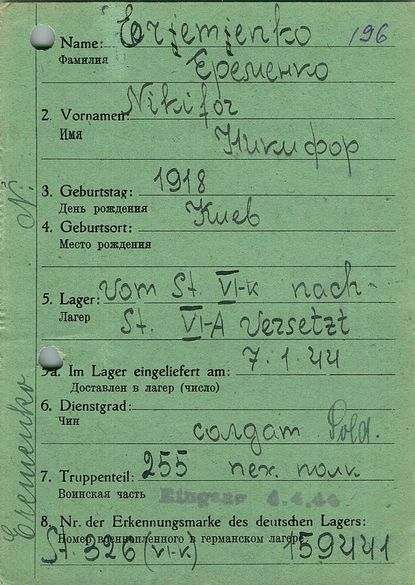 1. Name: Erjemjenko 196
Фамилия Еременко
2. Vornamen: Nikifor
Имя Никифор
3. Geburtstag: 1918
День рождения
4. Geburtsort: Киев
Место рождения
5. Lager: Vom St. VI-K nach
Лагер St. VI-A versetzt
5a. Im Lager eingeliefert am: 7.1.44
Доставлен в лагер (число)
6. Dienstgrad:
Чин солдат Sold.
7. Truppenteil: 255 пех. полк
Воинская часть Eingang 4.4.44
8. Nr. der Erkennungsmarke des deutschen Lagers:
Номер военнопленного в германском лагере
St. 326 (VI-K) 159441
Eremenko N.